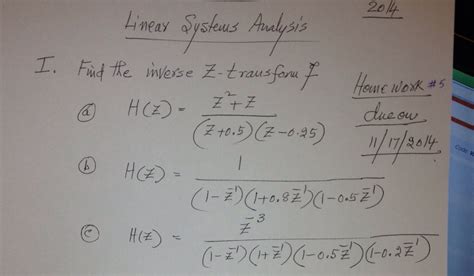 2014
Linear Systems Analysis
I. Find the inverse Z-transform of
Home work #5
due on
11/17/2014.
(a) H(z) = z² + z / (z+0.5)(z-0.25)
(b) H(z) = 1 / (1-z⁻¹)(1+0.8z⁻¹)(1-0.5z⁻¹)
(c) H(z) = z⁻³ / (1-z⁻¹)(1+z⁻¹)(1-0.5z⁻¹)(1-0.2z⁻¹)